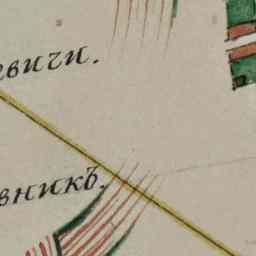 евичи.
вникъ.